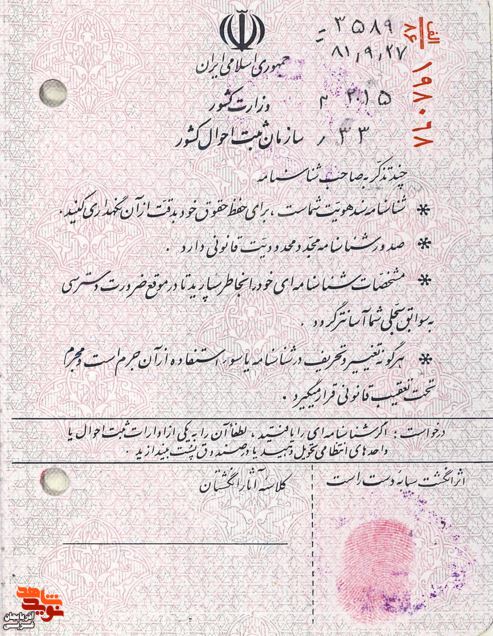 الف
۸۶
۱۹۸۰۶۸
۳۵۸۹
۸۱٫۹٫۲۷
جمهوری اسلامی ایران
وزارت کشور
۲۱۵
سازمان ثبت احوال کشور
۳۳
چند تذکر به صاحب شناسنامه
* شناسنامه سند هویت شماست ، برای حفظ حقوق خود بدقت از آن نگهداری کنید .
* صدور شناسنامه مجدد محدودیت قانونی دارد .
* مشخصات شناسنامه ای خود را بخاطر بسپارید تا در موقع ضرورت دسترسی
به سوابق سجلی شما آسانتر گردد .
* هرگونه تغییر و تحریف در شناسنامه یا سوء استفاده از آن جرم است و مجرم
تحت تعقیب قانونی قرار میگیرد .
درخواست : اگر شناسنامه ای را یافتید ، لطفاً آن را به یکی از ادارات ثبت احوال یا
واحدهای انتظامی تحویل و تهیه یا در صندوق پست بیندازید .
اثر انگشت سبابه دست راست
کلاسه آثار انگشتان
نوید شاهد
آذربایجان غربی